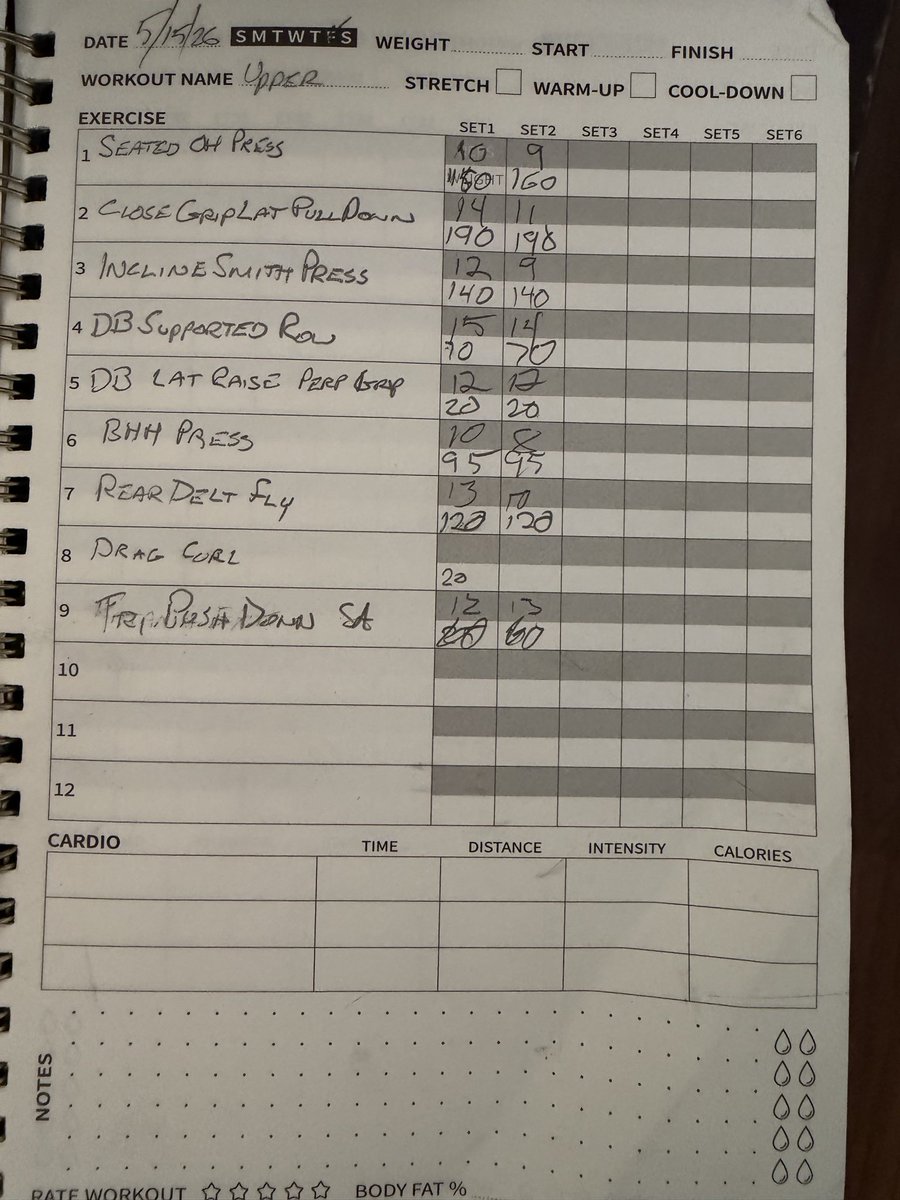 DATE 5/15/26 S M T W T F S WEIGHT START FINISH
WORKOUT NAME UPPER STRETCH WARM-UP COOL-DOWN
EXERCISE SET1 SET2 SET3 SET4 SET5 SET6
1 SEATED OH PRESS 10 9
160
2 CLOSE GRIP LAT PULL DOWN 14 11
190 190
3 INCLINE SMITH PRESS 12 9
140 140
4 DB SUPPORTED ROW 15 14
70 70
5 DB LAT RAISE PERP GRIP 12 12
20 20
6 BHH PRESS 10 8
95 95
7 REAR DELT FLY 13 10
120 120
8 DRAG CURL
20
9 PUSH DOWN SA 12 13
60
10
11
12
CARDIO TIME DISTANCE INTENSITY CALORIES
NOTES
RATE WORKOUT BODY FAT %